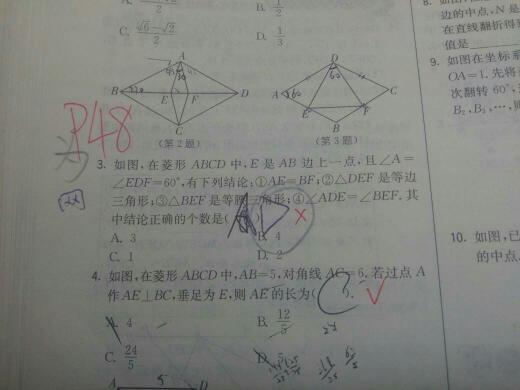 A. 2 B. 1/2
C. (√6-√2)/2 D. 1/3
A
B 120 E F D
C
(第2题)
D
60
A 60 C
E F
B
(第3题)
P48
3. 如图,在菱形 ABCD 中,E 是 AB 边上一点,且∠A=
∠EDF=60°,有下列结论:①AE=BF;②△DEF 是等边
三角形;③△BEF 是等腰三角形;④∠ADE=∠BEF.其
中结论正确的个数是( )
A. 3 B. 4
C. 1 D. 2
4. 如图,在菱形 ABCD 中,AB=5,对角线 AC=6.若过点 A
作 AE⊥BC,垂足为 E,则 AE 的长为( C ).
A. 4 B. 12/5
C. 24/5 D. 5
A 5 D
8. 如图,
边的中点,N 是
在直线翻折得到
值是
9. 如图在坐标系
OA=1.先将
次翻转 60°,
B₂,B₃,…,则
10. 如图,已
的中点